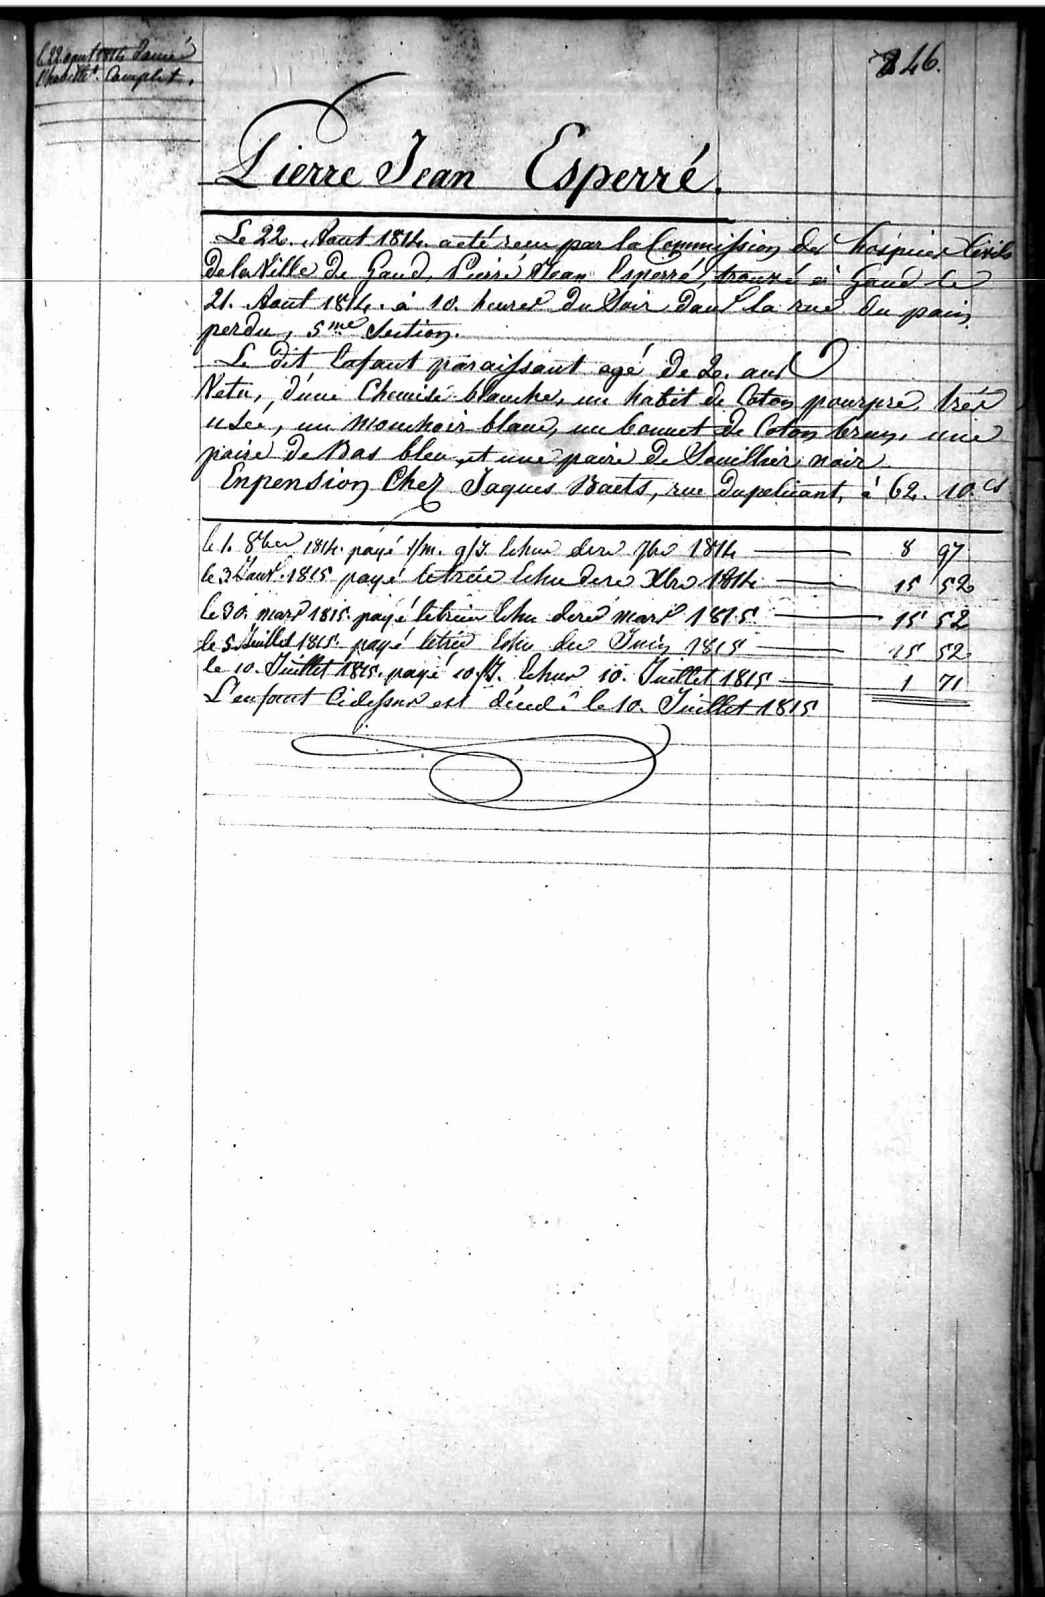 le 22 aout 1814 donné
l'habillt. Complet.
246.
Pierre Jean Esperré.
Le 22. Aout 1814. a eté recu par la Commission des hospices Civils
de la Ville de Gand, Pierre Jean Esperré, trouvé à Gand le
21. Aout 1814. à 10. heures du Soir dans la rue du pain
perdu, 5me Section.
Le dit Enfant paraissant agé de 2. ans
Vetu, d'une Chemise blanche, un habit de Coton pourpre, très
usée, un mouchoir blanc, un bonnet de Coton brun, une
paire de Bas bleu, et une paire de Souillier noir
Enpension Chez Jaques Baets, rue dupelicant, à 62. 10. cs
le 1. 8ber 1814. payé 1/m. 9/J. Echue dere 7bre 1814 — 8 97
le 3 Janv. 1815 payé letrée Echu dere Xbre 1814 — 15 52
le 30. mars 1815. payé letrée Echu dere mars 1815. — 15 52
le 5 Juillet 1815. payé letrée Echu der Juin 1815 — 15 52
le 10. Juillet 1815. payé 10/J. Echus 10. Juillet 1815 — 1 71
L'enfant Cidessus est décedé le 10. Juillet 1815